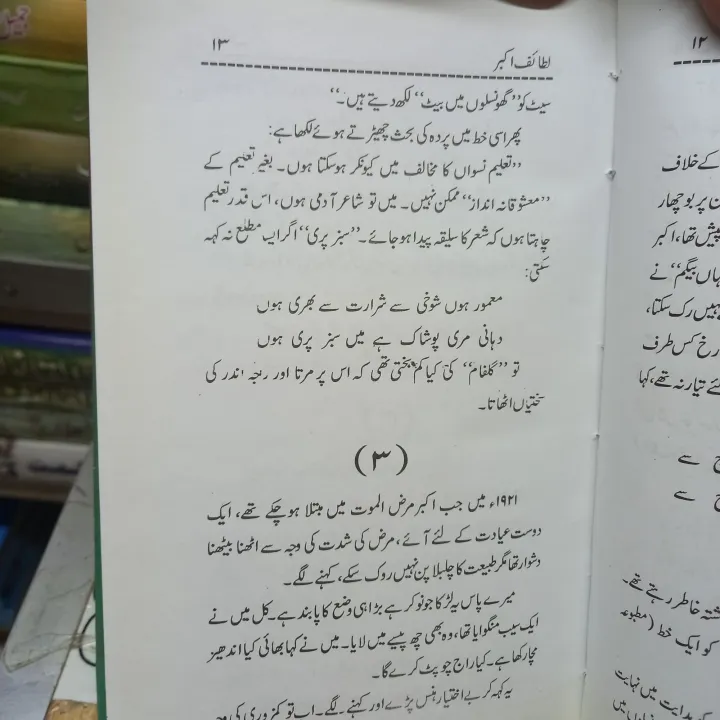 لطائف اکبر ۱۳
سیٹ کو ’’گھونسلوں میں بیٹ‘‘ لکھ دیتے ہیں۔‘‘
پھر اسی خط میں پردہ کی بحث چھیڑتے ہوئے لکھا ہے:
’’تعلیم نسواں کا مخالف میں کیونکر ہوسکتا ہوں۔ بغیر تعلیم کے
’’معشوقانہ انداز‘‘ ممکن نہیں۔ میں تو شاعر آدمی ہوں، اس قدر تعلیم
چاہتا ہوں کہ شعر کا سلیقہ پیدا ہو جائے۔ ’’سبز پری‘‘ اگر ایسا مطلع نہ کہہ
سکتی:
معمور ہوں شوخی سے شرارت سے بھری ہوں
دہانی مری پوشاک ہے میں سبز پری ہوں
تو ’’گلفام‘‘ کی کیا کم بختی تھی کہ اس پر مرتا اور راجہ اندر کی
سختیاں اٹھاتا۔
(۳)
۱۹۲۱ء میں جب اکبر مرض الموت میں مبتلا ہو چکے تھے، ایک
دوست عیادت کے لئے آئے، مرض کی شدت کی وجہ سے اٹھنا بیٹھنا
دشوار تھا مگر طبیعت کا چلبلا پن نہیں روک سکے، کہنے لگے۔
میرے پاس یہ لڑکا جو نوکر ہے بڑا ہی وضع کا پابند ہے۔ کل میں نے
ایک سیب منگوایا تھا، وہ بھی چھ پیسے میں لایا۔ میں نے کہا بھائی کیا اندھیر
مچا رکھا ہے۔ کیا راج چوپٹ کرے گا۔
یہ کہہ کر بے اختیار ہنس پڑے اور کہنے لگے۔ اب تو کمزوری کی وجہ
۱۲
کے خلاف
ن پر بوچھار
پیش تھا، اکبر
ہاں بیگم‘‘ نے
نہیں رک سکتا،
رخ کس طرف
ئے تیار نہ تھے، کہا
سے
سے
شتہ خاطر رہتے تھے۔
کو ایک خط (مطبوعہ
ہدایت میں نہایت